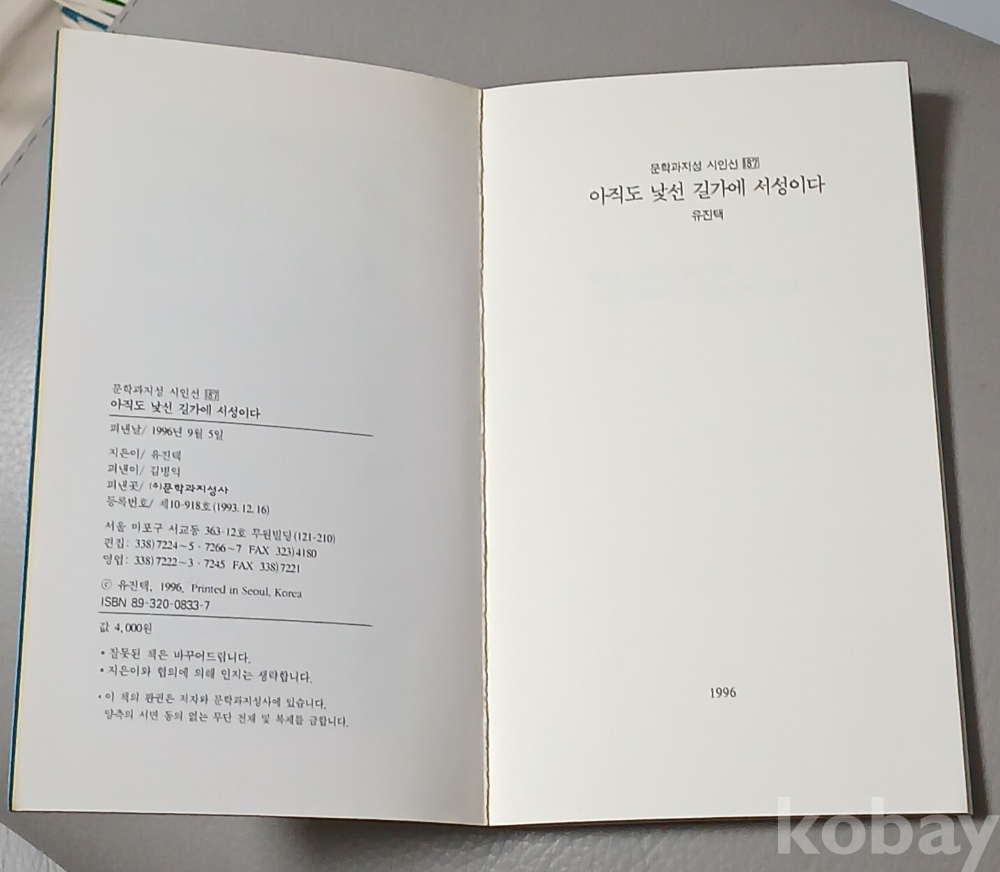 문학과지성 시인선 187
아직도 낯선 길가에 서성이다
펴낸날/ 1996년 9월 5일
지은이/ 유진택
펴낸이/ 김병익
펴낸곳/ (주)문학과지성사
등록번호/ 제10-918호(1993. 12. 16)
서울 마포구 서교동 363-12호 무원빌딩(121-210)
편집: 338)7224~5·7266~7 FAX 323)4180
영업: 338)7222~3·7245 FAX 338)7221
ⓒ 유진택, 1996. Printed in Seoul, Korea
ISBN 89-320-0833-7
값 4,000원
• 잘못된 책은 바꾸어드립니다.
• 지은이와 협의에 의해 인지는 생략합니다.
• 이 책의 판권은 저자와 문학과지성사에 있습니다.
양측의 서면 동의 없는 무단 전재 및 복제를 금합니다.
문학과지성 시인선 187
아직도 낯선 길가에 서성이다
유진택
1996
kobay